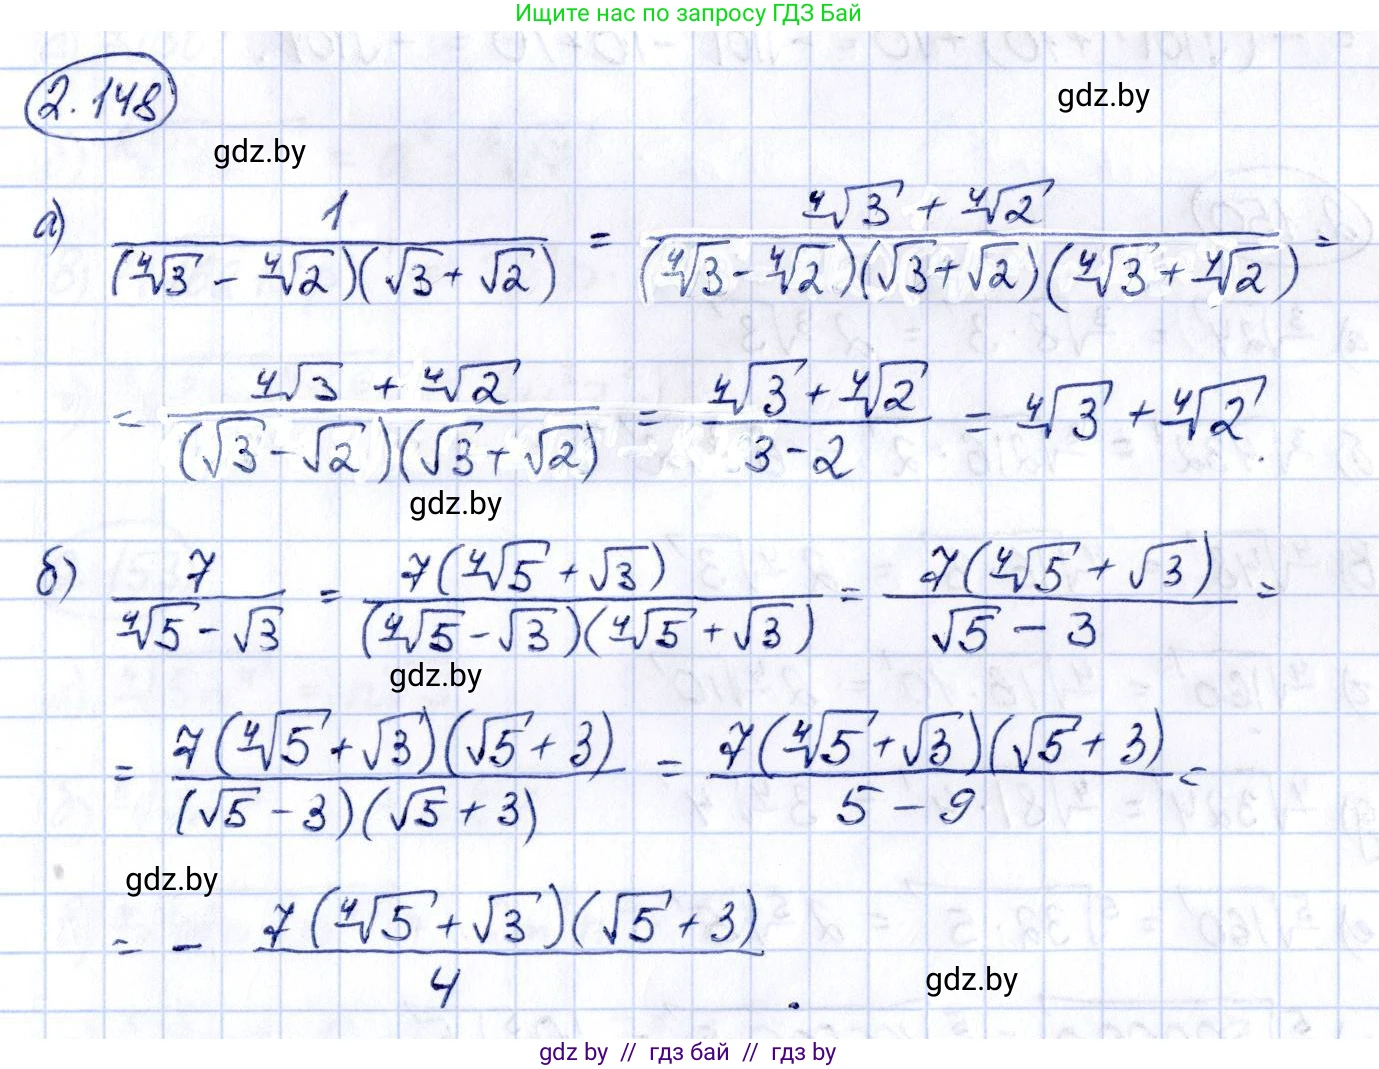 Ищите нас по запросу ГДЗ Бай
2.148
gdz.by
gdz.by
а) 1/((⁴√3 - ⁴√2)(√3 + √2)) = (⁴√3 + ⁴√2)/((⁴√3 - ⁴√2)(√3 + √2)(⁴√3 + ⁴√2)) =
= (⁴√3 + ⁴√2)/((√3 - √2)(√3 + √2)) = (⁴√3 + ⁴√2)/(3 - 2) = ⁴√3 + ⁴√2.
gdz.by
б) 7/(⁴√5 - √3) = 7(⁴√5 + √3)/((⁴√5 - √3)(⁴√5 + √3)) = 7(⁴√5 + √3)/(√5 - 3) =
gdz.by
= 7(⁴√5 + √3)(√5 + 3)/((√5 - 3)(√5 + 3)) = 7(⁴√5 + √3)(√5 + 3)/(5 - 9) =
gdz.by
= - 7(⁴√5 + √3)(√5 + 3)/4.
gdz.by
gdz by // гдз бай // гдз by